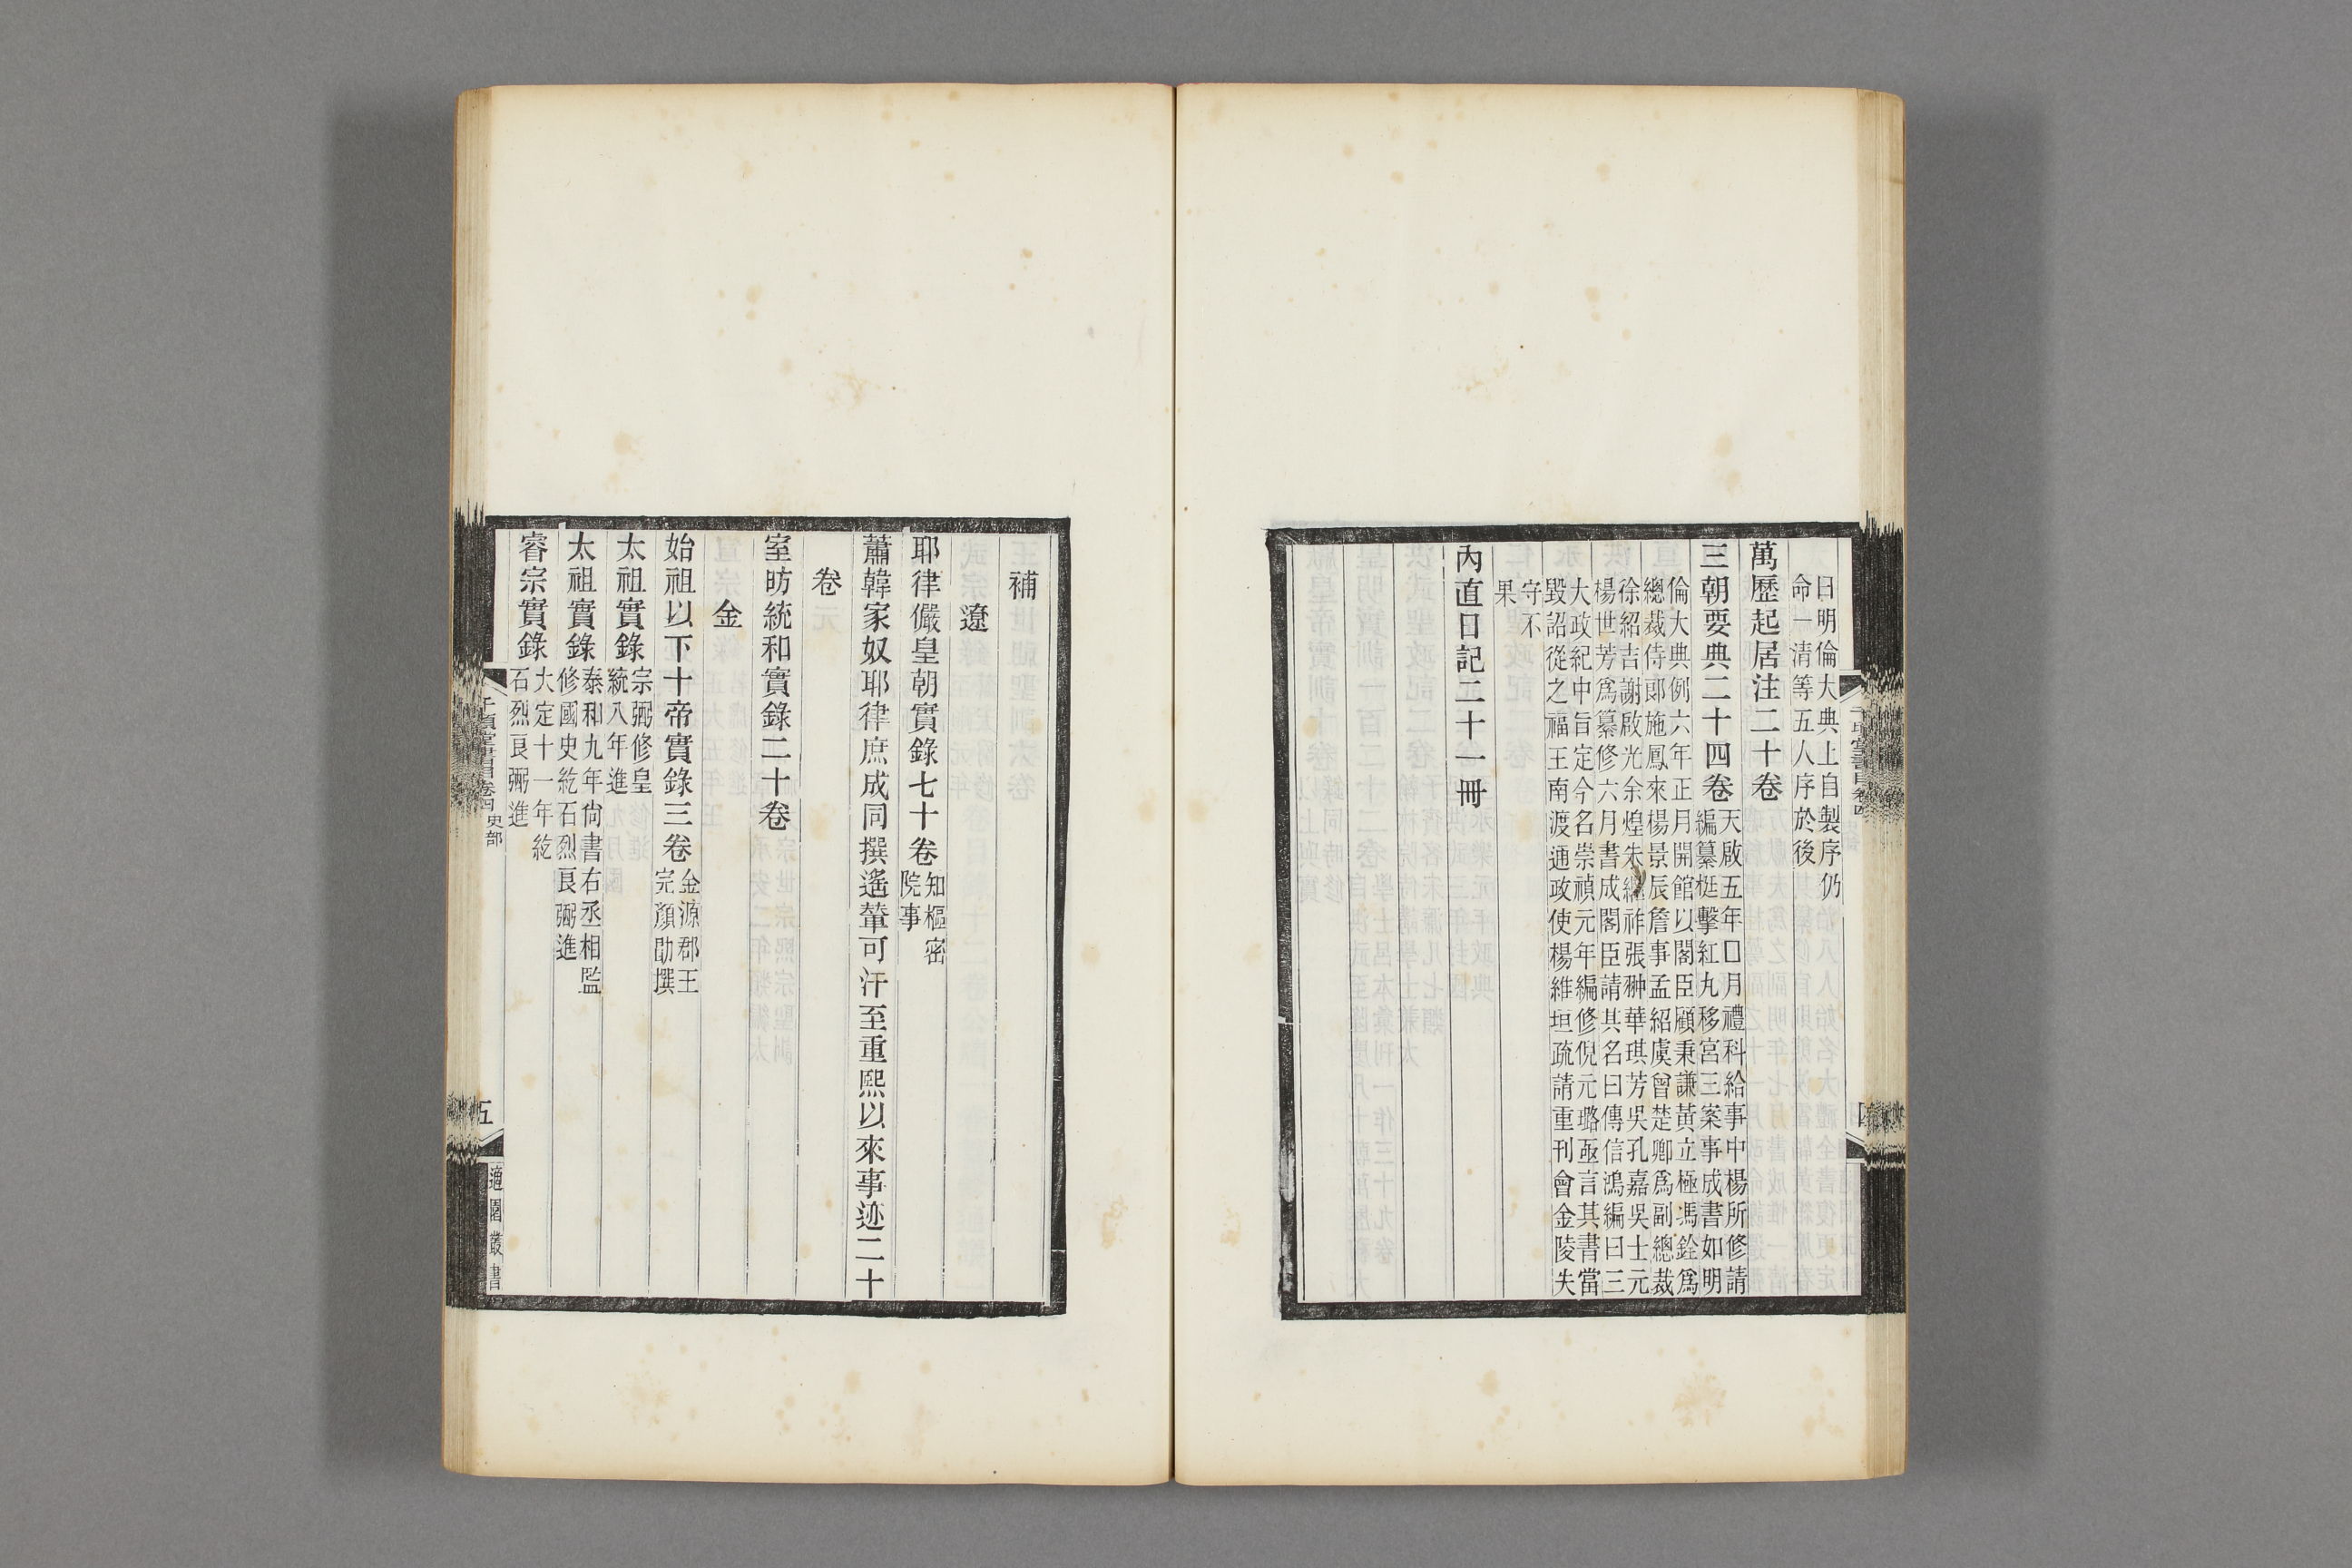 日明倫大典上自製序仍
命一清等五人序於後
萬歷起居注二十卷
三朝要典二十四卷
天啟五年口月禮科給事中楊所修請
編纂梃擊紅丸移宮三案事成書如明
倫大典例六年正月開館以閣臣顧秉謙黃立極馮銓爲
總裁侍郎施鳳來楊景辰詹事孟紹虞曾楚卿爲副總裁
徐紹吉謝啟光余煌朱繼祚張翀華琪芳吳孔嘉吳士元
楊世芳爲纂修六月書成閣臣請其名曰傳信鴻編曰三
大政紀中旨定今名崇禎元年編修倪元璐亟言其書當
毀詔從之福王南渡通政使楊維垣疏請重刊會金陵失
守不
果
內直日記二十一冊
補
遼
耶律儼皇朝實錄七十卷
知樞密
院事
蕭韓家奴耶律庶成同撰遙輦可汗至重熙以來事迹二十
卷
室昉統和實錄二十卷
金
始祖以下十帝實錄三卷
金源郡王
完顏勖撰
太祖實錄
宗弼修皇
統八年進
太祖實錄
泰和九年尙書右丞相監
修國史紇石烈良弼進
睿宗實錄
大定十一年紇
石烈良弼進
千頃堂書目卷四 史部
五
適園叢書